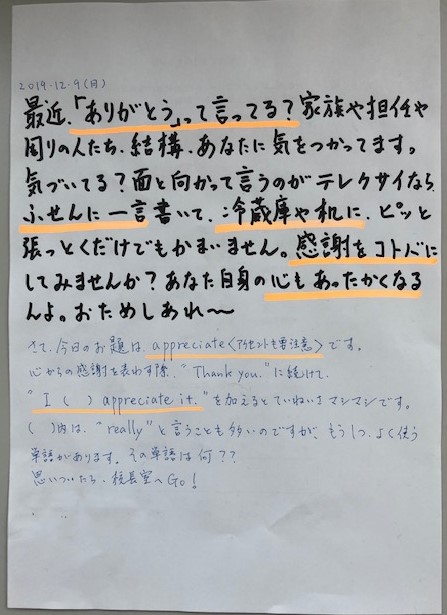 2019.12.9(月)
最近、「ありがとう」って言ってる?家族や担任や
周りの人たち、結構、あなたに気をつかってます。
気づいてる?面と向かって言うのがテレクサイなら、
ふせんに一言書いて、冷蔵庫や机に、ピッと
張っとくだけでもかまいません。感謝をコトバに
してみませんか?あなた自身の心もあったかくなる
んよ。おためしあれ〜
さて、今日のお題は、appreciate<アクセントも要注意>です。
心からの感謝を表わす際、"Thank you."に続けて、
"I ( ) appreciate it."を加えるとていねいさマシマシです。
( )内は、"really"と言うことも多いのですが、もう1つ、よく使う
単語があります。その単語は何??
思いついたら、校長室へGo!